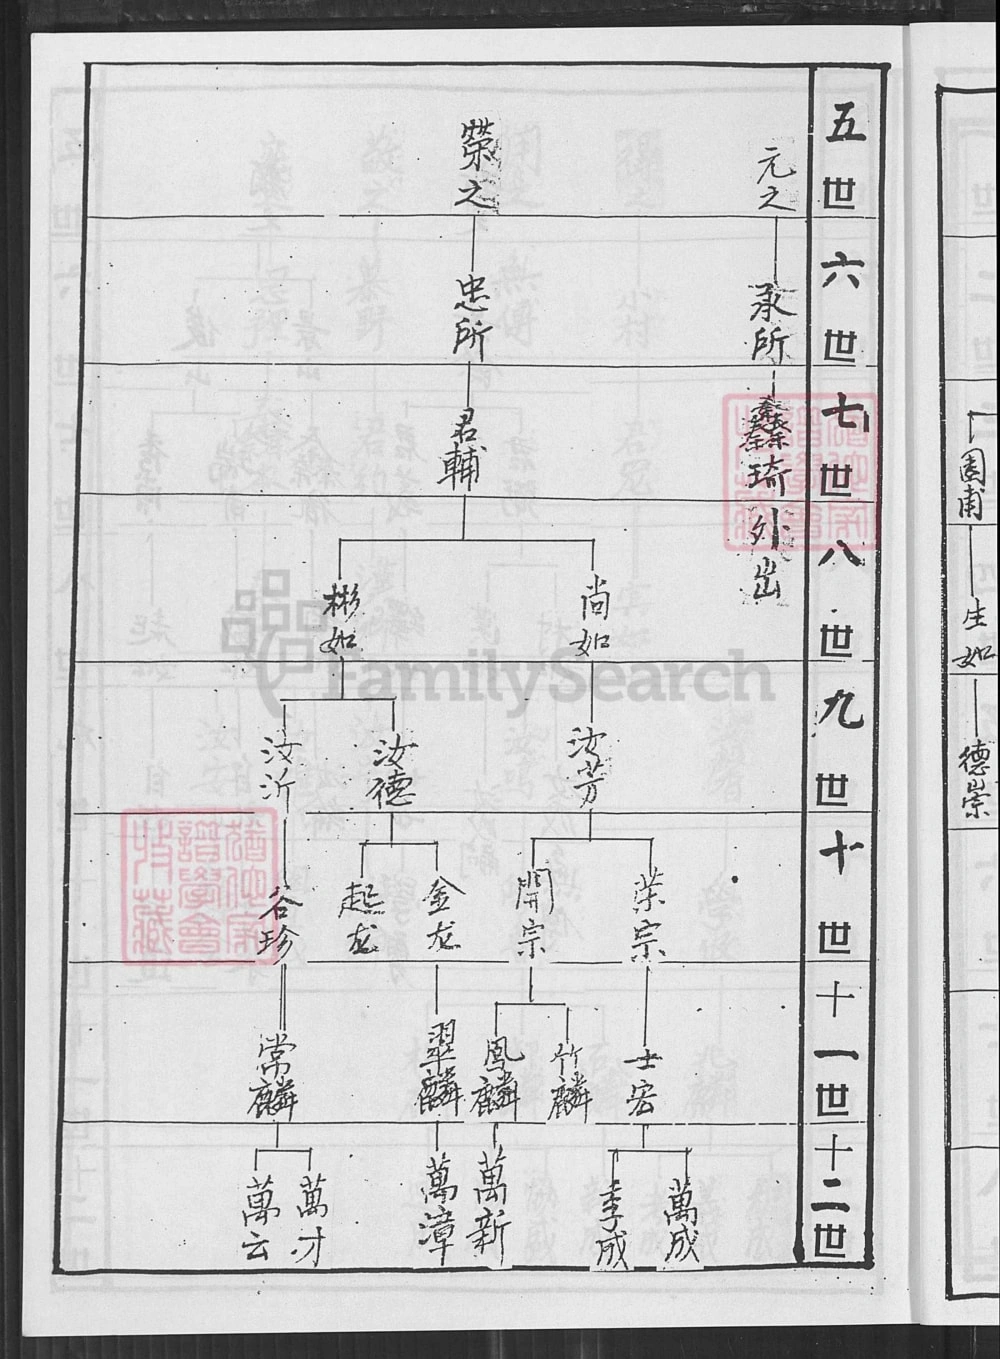 五世
六世
七世
八世
九世
十世
十一世
十二世
元之
承所
琦外出
榮之
忠所
君輔
尚如
彬如
汝芳
汝德
汝沂
荣宗
開宗
金龙
起龙
谷珍
士宏
竹麟
鳳麟
翠麟
常麟
萬成
季成
萬新
萬漳
萬才
萬云
園甫
生如
德崇
FamilySearch